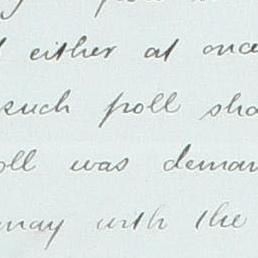 either at once
such poll sha
oll was deman
may with the